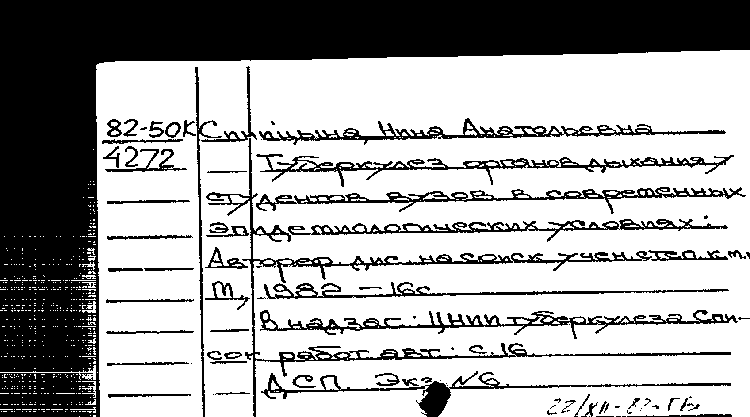 82-50К Спицына, Нина Анатольевна
4272 Туберкулез органов дыхания у
студентов вузов в современных
эпидемиологических условиях:
Автореф. дис. на соиск учен. степ. к.м.
М., 1982 - 16с
В надзаг: ЦНИИ туберкулеза Спи-
сок работ авт: с. 16
ДСП. Экз. №6.
22/XII-82-